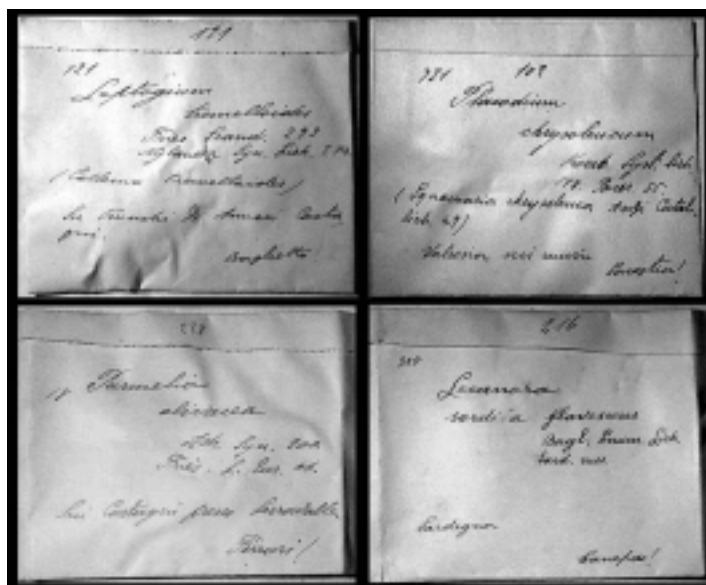 121
121
Leptogium
tremelloides
Fries Scand. 293
Nylander Syn. Lich.
(Collema tremelloides)
Su Tronchi di Annosi Casta
gni.
Baglietto!
102
Placodium
chrysoleucum
Koerb. Syst. Lich.
Th. Parer. 55
(Squamaria chrysoleuca Anzi Catal.
Lich. 47)
Valsesia nei
Carestia!
Parmelia
olivacea
Ach. Syn. 200
Fries. L. Eur.
Sui Castagni presso
Ferrari!
216
Lecanora
sordida flavescens
Bagl. Enum. Lich.
Sard.
Sardegna
Canepa!